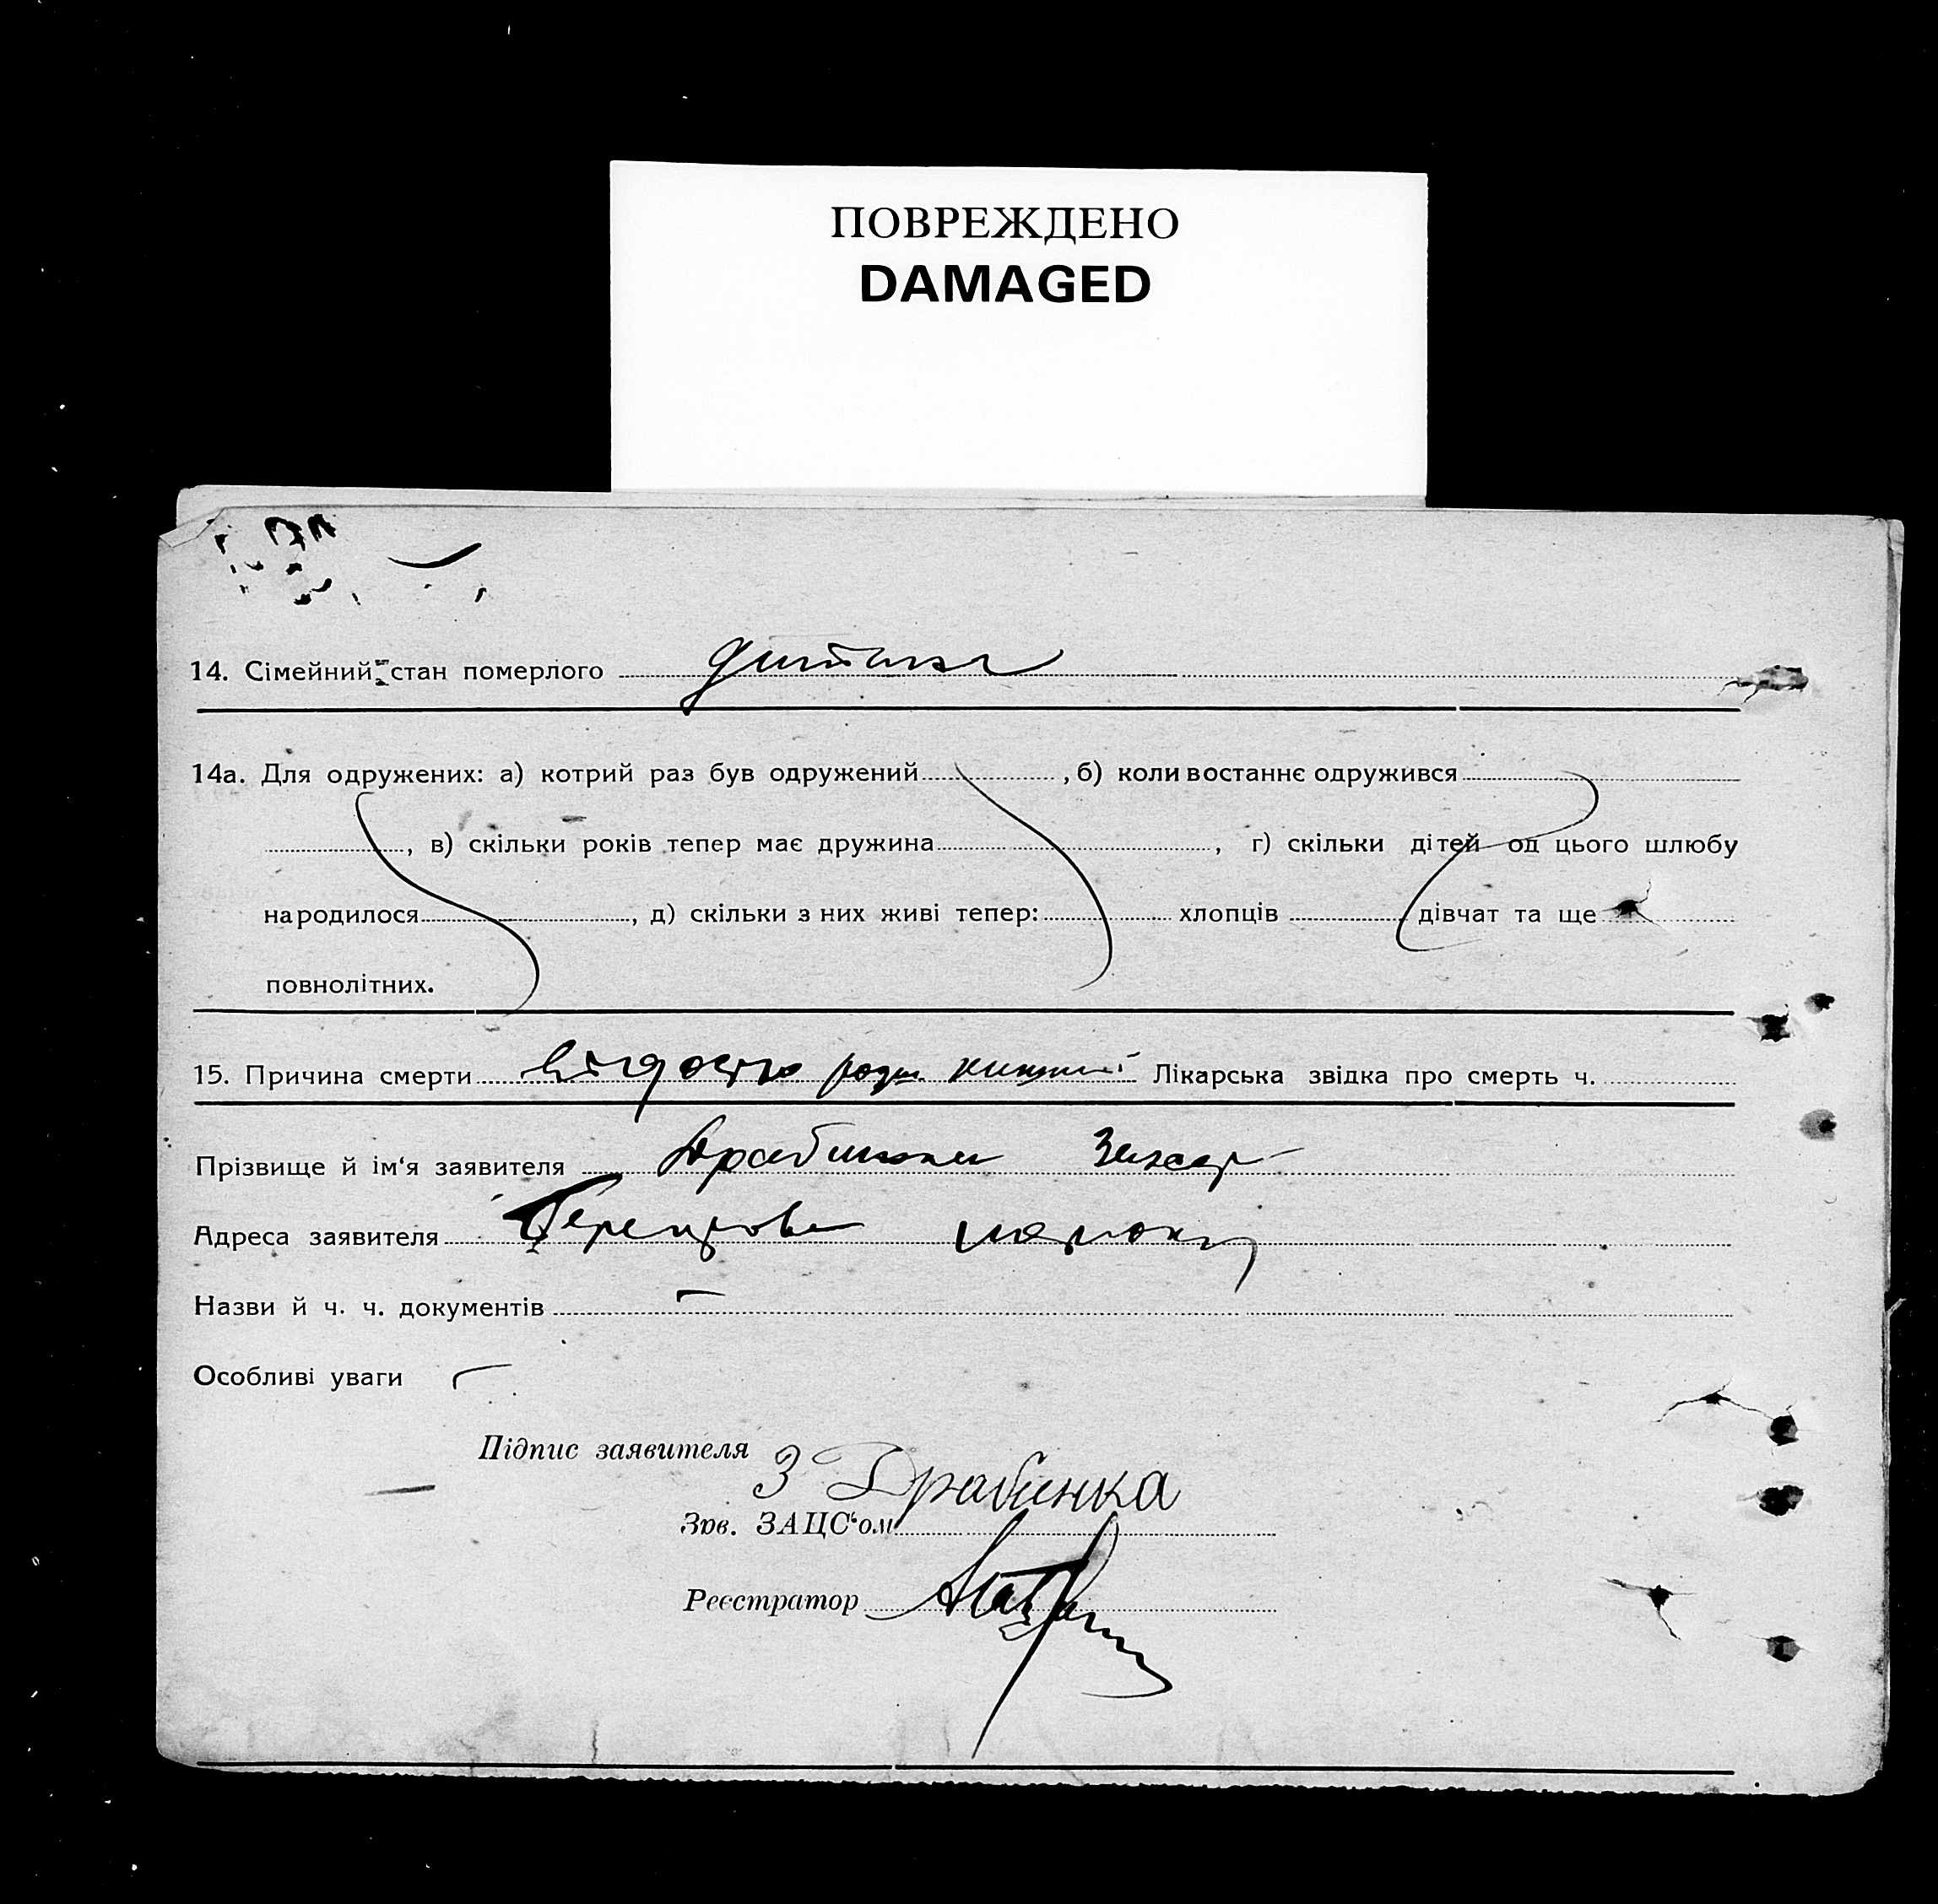 ПОВРЕЖДЕНО
DAMAGED
14. Сімейний стан померлого дитина
14а. Для одружених: а) котрий раз був одружений , б) коли востаннє одружився
, в) скільки років тепер має дружина , г) скільки дітей од цього шлюбу
народилося , д) скільки з них живі тепер: хлопців дівчат та ще
повнолітних.
15. Причина смерти Лікарська звідка про смерть ч.
Прізвище й ім'я заявителя Драбинка Захар
Адреса заявителя
Назви й ч. ч. документів —
Особливі уваги —
Підпис заявителя З Драбинка
Зав. ЗАЦС'ом
Реєстратор